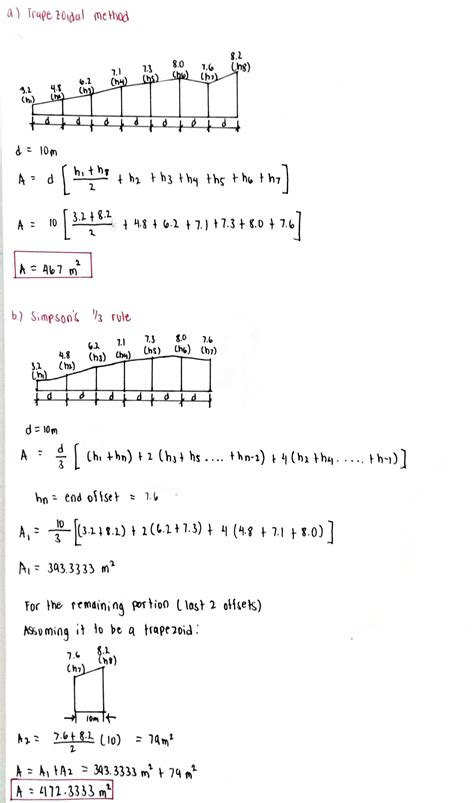 a) Trapezoidal method
3.2 4.8 6.2 7.1 7.3 8.0 7.6 8.2
(h1) (h2) (h3) (h4) (h5) (h6) (h7) (h8)
d d d d d d d
d = 10m
A = d [ (h1 + h8)/2 + h2 + h3 + h4 + h5 + h6 + h7 ]
A = 10 [ (3.2 + 8.2)/2 + 4.8 + 6.2 + 7.1 + 7.3 + 8.0 + 7.6 ]
A = 467 m²
b.) Simpson's 1/3 rule
3.2 4.8 6.2 7.1 7.3 8.0 7.6
(h1) (h2) (h3) (h4) (h5) (h6) (h7)
d d d d d d
d = 10m
A = d/3 [ (h1 + hn) + 2 (h3 + h5 .... + hn-2) + 4 (h2 + h4 ..... + h-1) ]
hn = end offset = 7.6
A1 = 10/3 [(3.2 + 8.2) + 2 (6.2 + 7.3) + 4 (4.8 + 7.1 + 8.0) ]
A1 = 393.3333 m²
For the remaining portion (last 2 offsets)
Assuming it to be a trapezoid:
7.6 8.2
(h7) (h8)
10m
A2 = (7.6 + 8.2)/2 (10) = 79m²
A = A1 + A2 = 393.3333 m² + 79 m²
A = 472.3333 m²